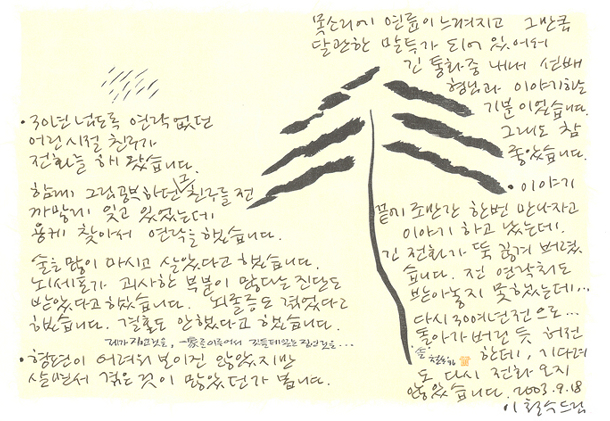 • 30년 넘도록 연락 없던
어린시절 친구가
전화를 해 왔습니다.
함께 그림공부하던 그 친구를 전
까맣게 잊고 있었는데
용케 찾아서 연락을 했습니다.
술을 많이 마시고 살았다고 했습니다.
뇌세포가 괴사한 부분이 많다는 진단도
받았다고 했습니다. 뇌졸중도 겪었다고
했습니다. 결혼도 안했다고 했습니다.
• 형편이 어려워 보이진 않았지만
살면서 겪은 것이 많았던가 봅니다.
목소리에 연륜이 느껴지고 그만큼
달관한 말투가 되어 있어서
긴 통화중 내내 선배
형님과 이야기하는
기분이었습니다.
그래도 참
좋았습니다.
• 이야기
끝에 조만간 한번 만나자고
이야기 하고 났는데.
긴 전화가 뚝 끊겨 버렸
습니다. 전 연락처도
받아놓지 못했는데...
다시 30여년 전으로...
돌아가버린 듯 허전
한데, 기다려
도 다시 전화 오지
않았습니다. 2003.9.18
이철수 드림